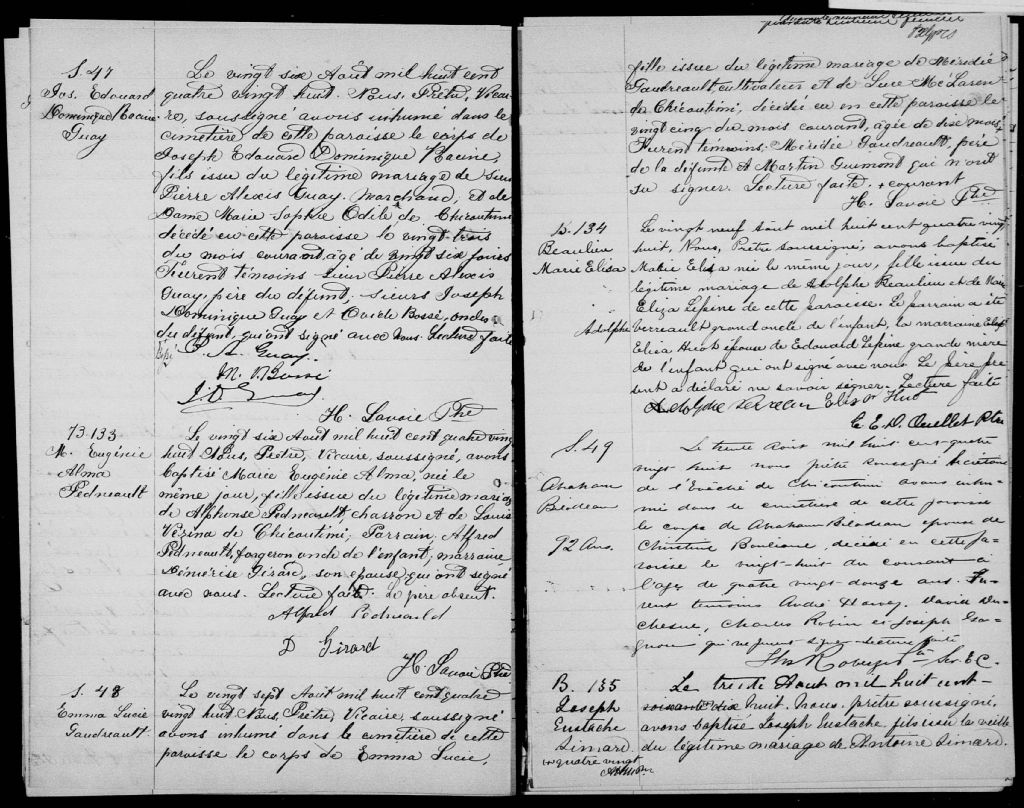 S. 47
Jos. Edouard
Dominique Racine
Guay
Le vingt six Août mil huit cent
quatre vingt huit. Nous, Prêtre, Vicai-
re, soussigné avons inhumé dans le
cimetière de cette paroisse le corps de
Joseph Edouard Dominique Racine,
fils issu du légitime mariage de Sieur
Pierre Alexis Guay, Marchand, et de
Dame Marie Sophie Odile de Chicoutimi
décédé en cette paroisse le vingt trois
du mois courant, age de vingt six jours
Furent témoins Sieur Pierre Alexis
Guay, père du défunt, Sieurs Joseph
Dominique Guay et Ovide Bossé, oncles
du défunt, qui ont signé avec nous. Lecture faite
P. A. Guay.
J. D. Guay
H. Savoie Ptre
B. 133
M. Eugénie
Alma
Pedneault
Le vingt six Août mil huit cent quatre vingt
huit Nous, Prêtre, Vicaire, soussigné, avons
baptisé Marie Eugénie Alma, née le
même jour, fille issue du légitime mariage
de Alphonse Pedneault, charron et de Louise
Vézina de Chicoutimi; Parrain, Alfred
Pedneault, forgeron oncle de l'enfant; marraine
Démérise Girard, son épouse qui ont signé
avec nous. Lecture faite. Le père absent.
Alfred Pedneauld
D Girard
H. Savoie Ptre
S. 48
Emma Lucie
Gaudreault
Le vingt sept Août mil huit cent quatre
vingt huit Nous, Prêtre, Vicaire, soussigné
avons inhumé dans le cimetière de cette
paroisse le corps de Emma Lucie,
fille issue du légitime mariage de Méridée
Gaudreault, cultivateur et de Luce McLaren
de Chicoutimi, décédée en cette paroisse le
vingt cinq du mois courant, âgée de dix mois
Furent témoins Méridée Gaudreault, père
de la défunte et Martin Guimont qui n'ont
su signer. Lecture faite. + courant
H. Savoie Ptre
B. 134
Beaulieu
Marie Elisa
Le vingt neuf août mil huit cent quatre vingt
huit, Nous, Prêtre soussigné, avons baptisé
Marie Elisa née le même jour, fille issue du
légitime mariage de Adolphe Beaulieu et de Marie
Eliza Lepine de cette paroisse. Le parrain a été
Adolphe Verreault, grand oncle de l'enfant, la marraine
Elisa Huot épouse de Edouard Lepine grande mère
de l'enfant qui ont signé avec nous. Le père pré
sent a déclaré ne savoir signer. Lecture faite
Adolphe Verreau Eliza Huot
E. D. Ouellet Ptre
S. 49
Abraham
Bilodeau
92 Ans.
Le trente Août mil huit cent quatre
vingt huit nous prêtre soussigné Secrétaire
de l'Evêché de Chicoutimi avons inhu-
mé dans le cimetière de cette paroisse
le corps de Abraham Bilodeau epoux de
Christine Boulianne, décédé en cette pa-
roisse le vingt-huit du courant à
l'age de quatre vingt douze ans. Fu-
rent témoins André Harvey, David Du-
chesne, Charles Robin et Joseph Ga-
gnon qui ne purent signer. Lecture faite
B. 135
Joseph
Eustache
Simard
Le trente Aout mil huit cent
soixante dix huit. Nous, prêtre soussigné,
avons baptisé Joseph Eustache, fils issu la veille
du légitime mariage de Antoine Simard.
quatre vingt